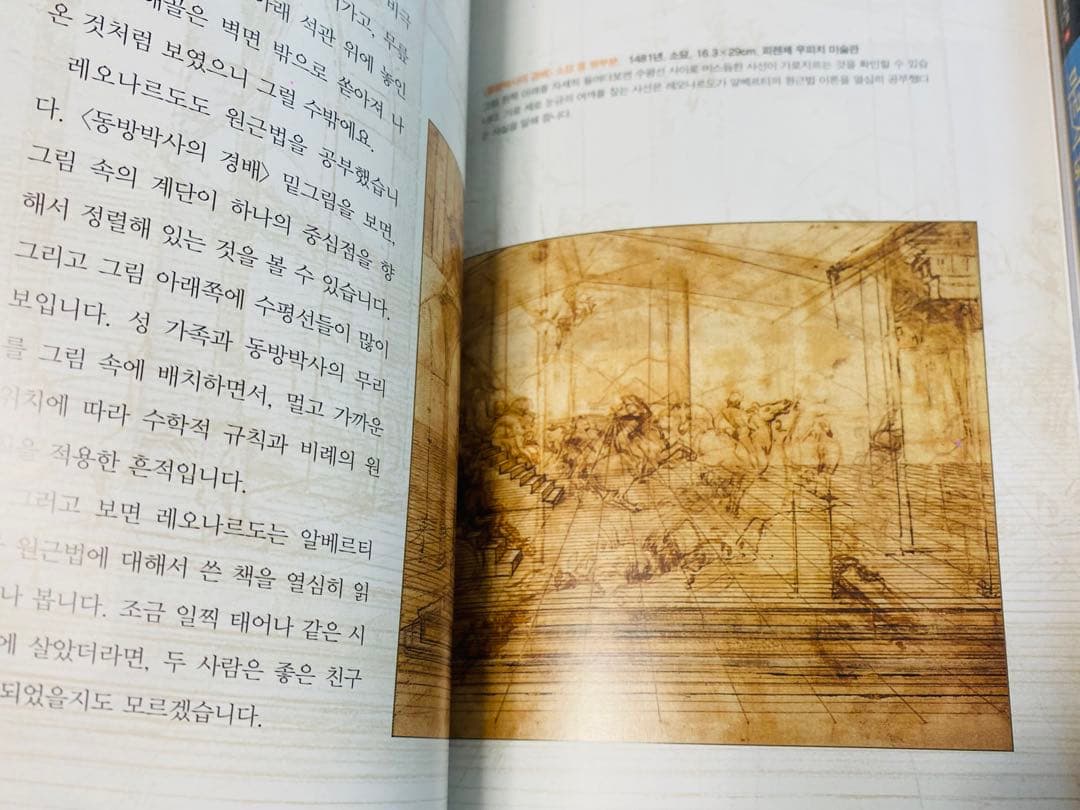 비극
여가고, 무릎
아래 석관 위에 놓인
해골은 벽면 밖으로 쏟아져 나
온 것처럼 보였으니 그럴 수밖에요.
레오나르도도 원근법을 공부했습니
다. 〈동방박사의 경배〉 밑그림을 보면,
그림 속의 계단이 하나의 중심점을 향
해서 정렬해 있는 것을 볼 수 있습니다.
그리고 그림 아래쪽에 수평선들이 많이
보입니다. 성 가족과 동방박사의 무리
를 그림 속에 배치하면서, 멀고 가까운
위치에 따라 수학적 규칙과 비례의 원
을 적용한 흔적입니다.
그러고 보면 레오나르도는 알베르티
원근법에 대해서 쓴 책을 열심히 읽
나 봅니다. 조금 일찍 태어나 같은 시
에 살았더라면, 두 사람은 좋은 친구
되었을지도 모르겠습니다.
1481년, 소묘, 16.3×29cm, 피렌체 우피치 미술관
그림 왼쪽 아래를 자세히 들여다보면 수평선 사이로 비스듬한 사선이 가로지르는 것을 확인할 수 있습
사선은 레오나르도가 알베르티의 원근법 이론을 열심히 공부했다